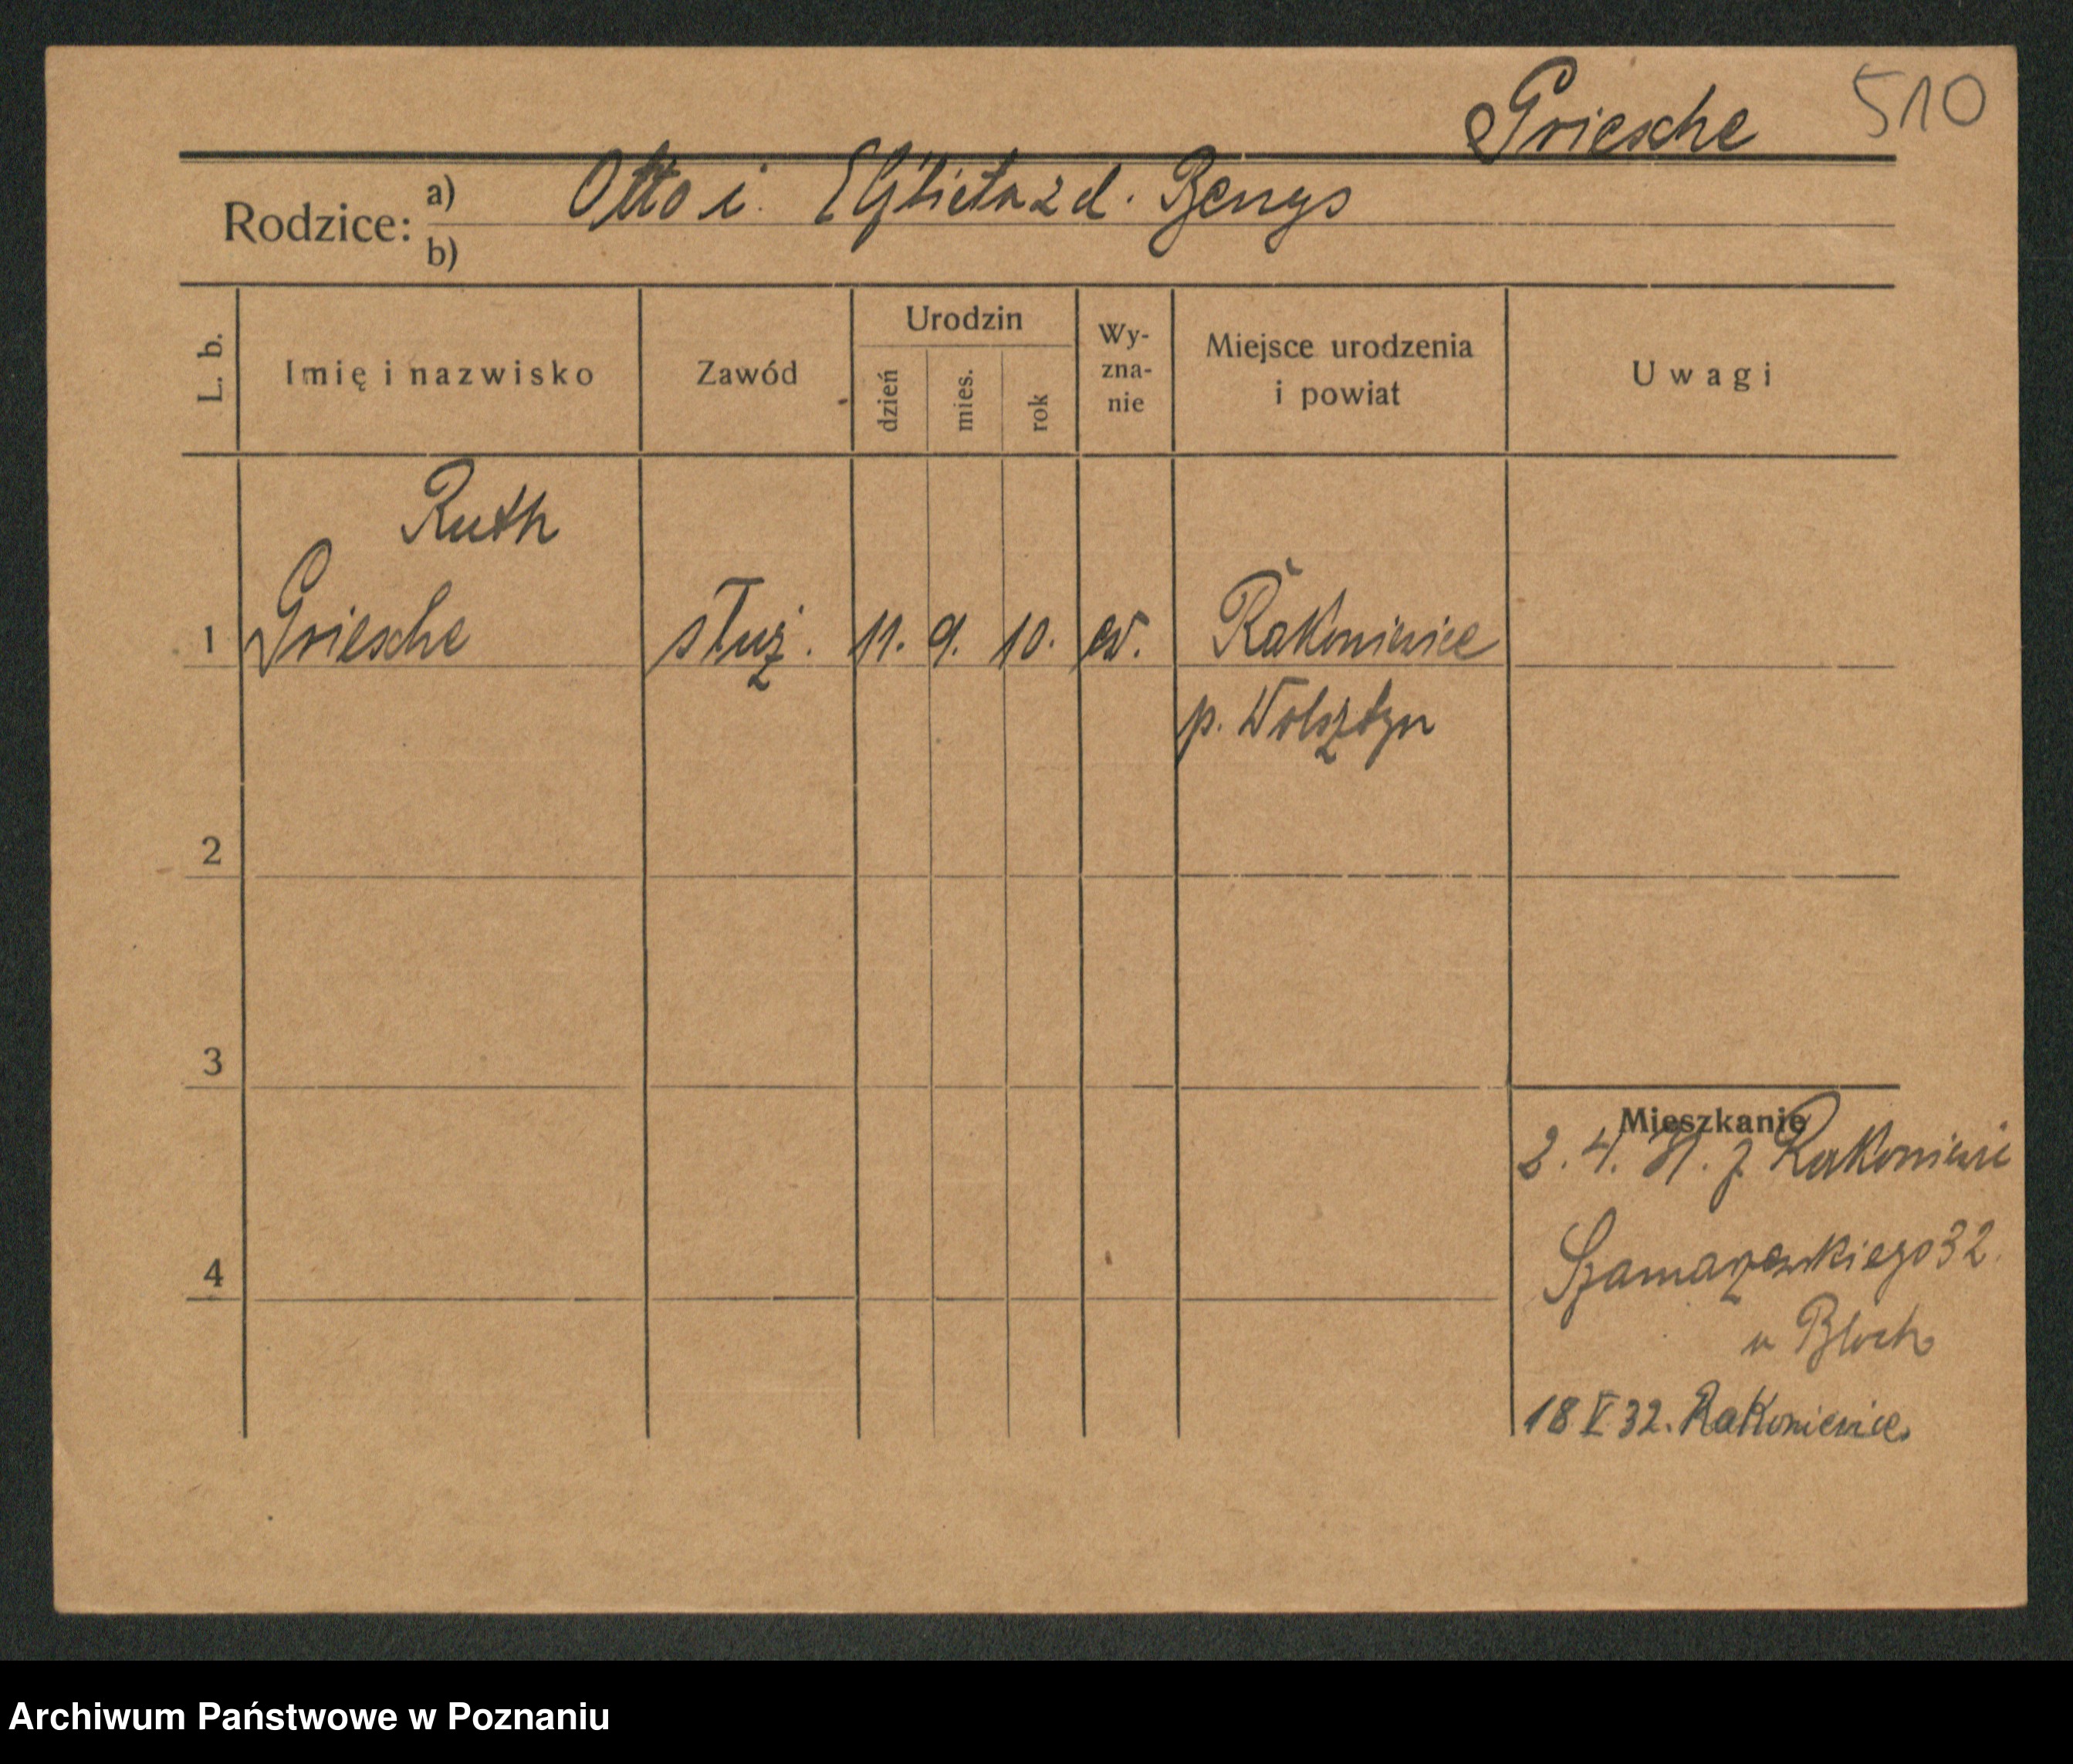 Griesche 510
Rodzice: a) Otto i Elżbieta z d. Benys
b)
L. b. Imię i nazwisko Zawód Urodzin dzień mies. rok Wy-zna-nie Miejsce urodzenia i powiat Uwagi
Ruth
1 Griesche służ. 11. 9. 10. ew. Rakoniewice
p. Wolsztyn
2
3
Mieszkanie
2. 4. 31. z Rakoniewic
4 Szamarzewskiego 32.
u Bloch
18 V 32. Rakoniewice.
Archiwum Państwowe w Poznaniu